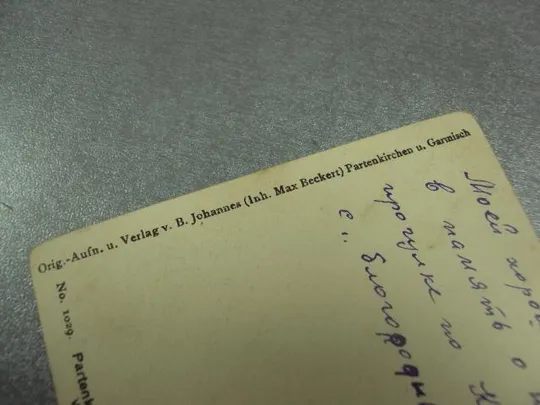 Orig.-Aufn. u. Verlag v. B. Johannes (Inh. Max Beckert) Partenkirchen u. Garmisch
No. 1029. Partenk
Моей хорош
в память о
прогулке по
с благородн